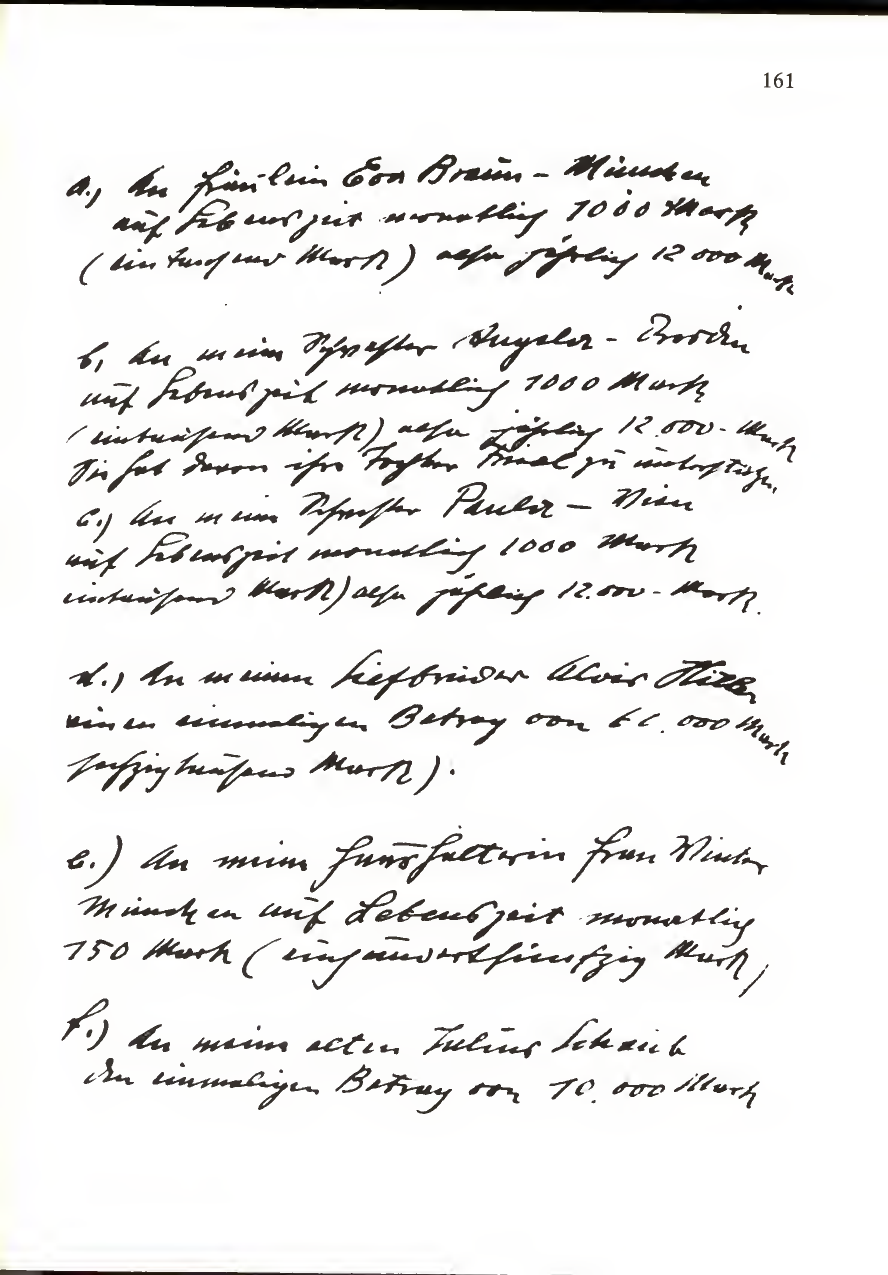 161
a.) An Fräulein Eva Braun – München
auf Lebenszeit monatlich 1000 Mark
(eintausend Mark) also jährlich 12 000 Mark
b, An meine Schwester Angela – Dresden
auf Lebenszeit monatlich 1000 Mark
(eintausend Mark) also jährlich 12.000 - Mark
Sie hat davon ihre Tochter Friedl zu unterstützen.
c.) An meine Schwester Paula – Wien
auf Lebenszeit monatlich 1000 Mark
eintausend Mark) also jährlich 12.000 - Mark.
d.) An meinen Stiefbruder Alois Hitler
einen einmaligen Betrag von 60.000 Mark
sechzigtausend Mark).
e.) An meine Haushälterin Frau Winter
München auf Lebenszeit monatlich
150 Mark (einhundertfünfzig Mark)
f.) An meinen alten Julius Schaub
den einmaligen Betrag von 10.000 Mark